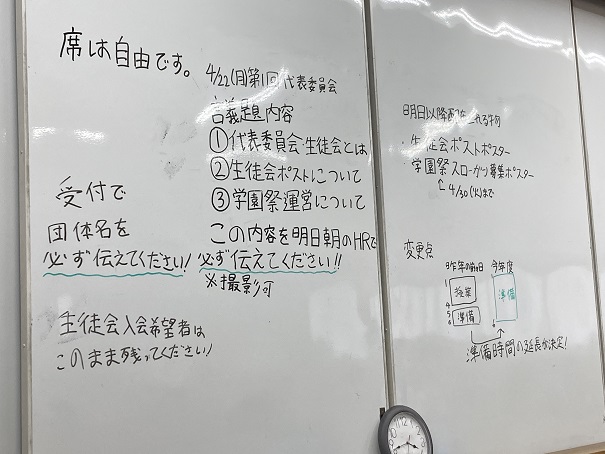 席は自由です。
受付で
団体名を
必ず伝えてください!
生徒会入会希望者は
このまま残ってください!
4/22(月)第1回代表委員会
議題内容
①代表委員会・生徒会とは
②生徒会ポストについて
③学園祭運営について
この内容を明日朝のHRで
必ず伝えてください!!
※撮影可
明日以降
・生徒会ポストポスター
学園祭スローガン募集ポスター
4/30(火)まで
変更点
昨年の前日
今年度
1
授業
4
5
準備
6
1
準備
6
準備時間の延長が決定!